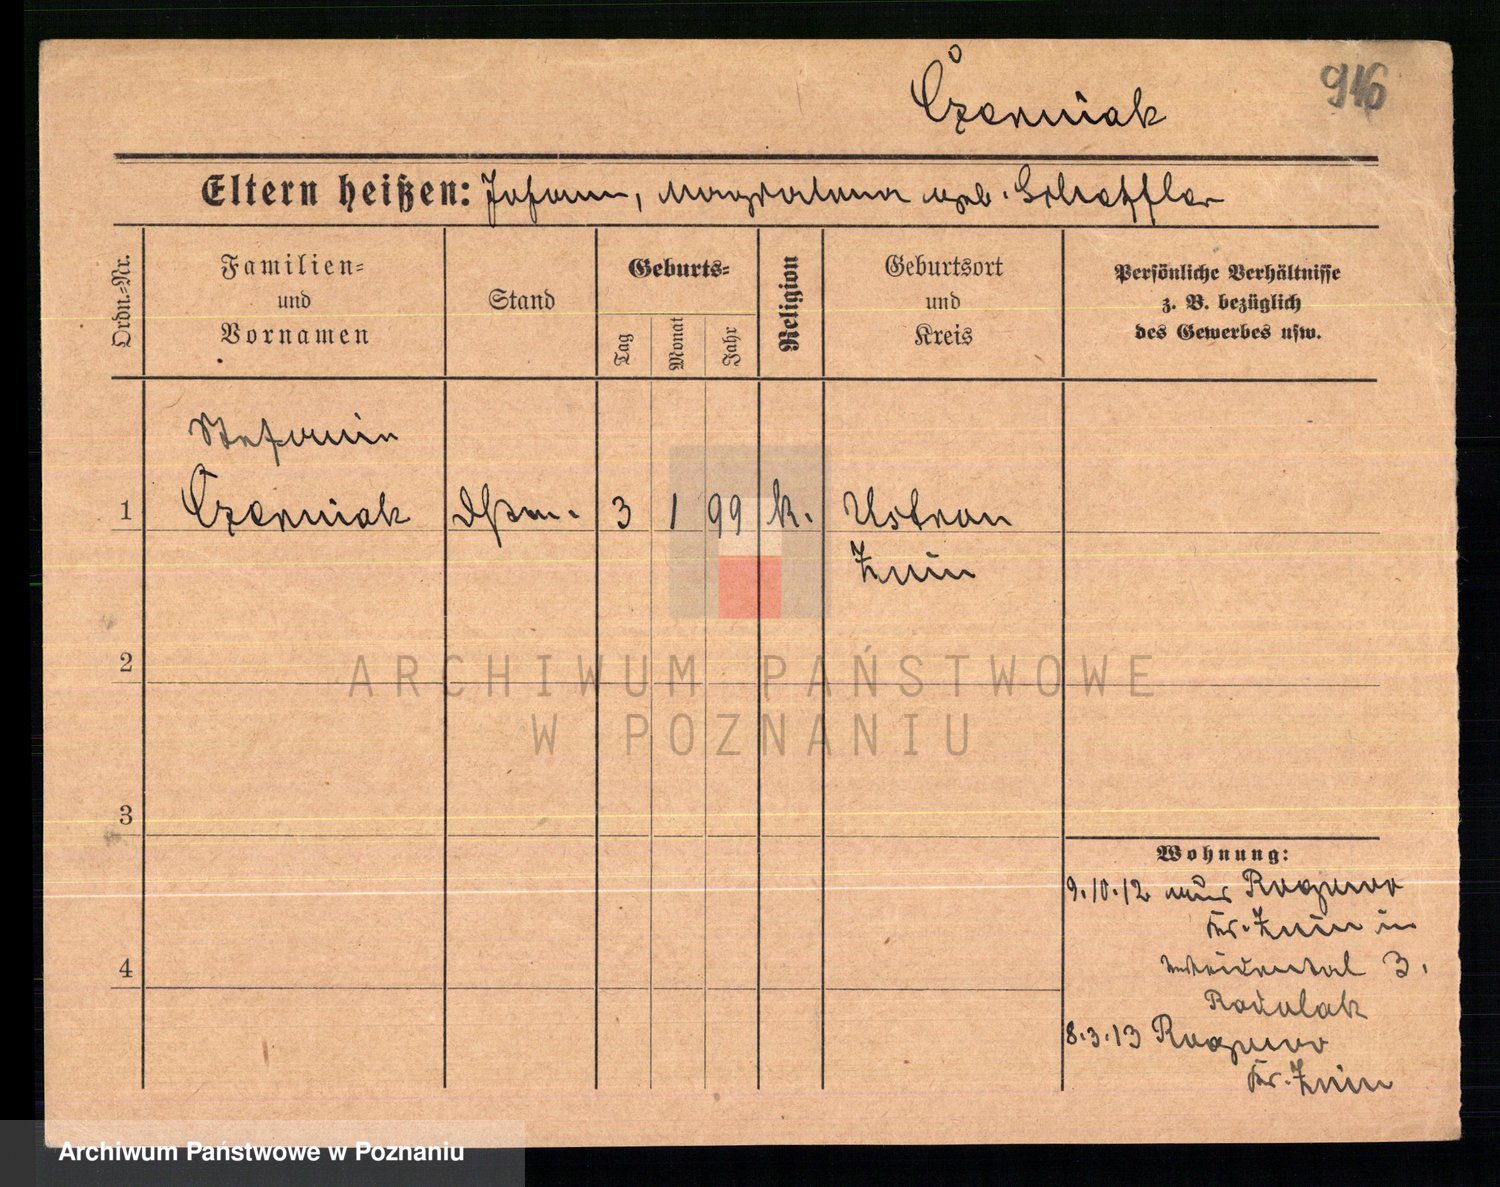 916
Czerniak
Eltern heißen: Johann, Magdalena geb. Scheffler
Ordn.-Nr.
Familien-
und
Vornamen
Stand
Geburts-
Tag
Monat
Jahr
Religion
Geburtsort
und
Kreis
Persönliche Verhältnisse
z. B. bezüglich
des Gewerbes usw.
Stefanie
1 Czerniak 3 1 99 k. Ustron
Znin
2
ARCHIWUM PAŃSTWOWE
W POZNANIU
3
4
Wohnung:
9.10.12 aus Rogowo
Kr. Znin in
3.
Radulak
8.3.13 Rogowo
Kr. Znin
Archiwum Państwowe w Poznaniu